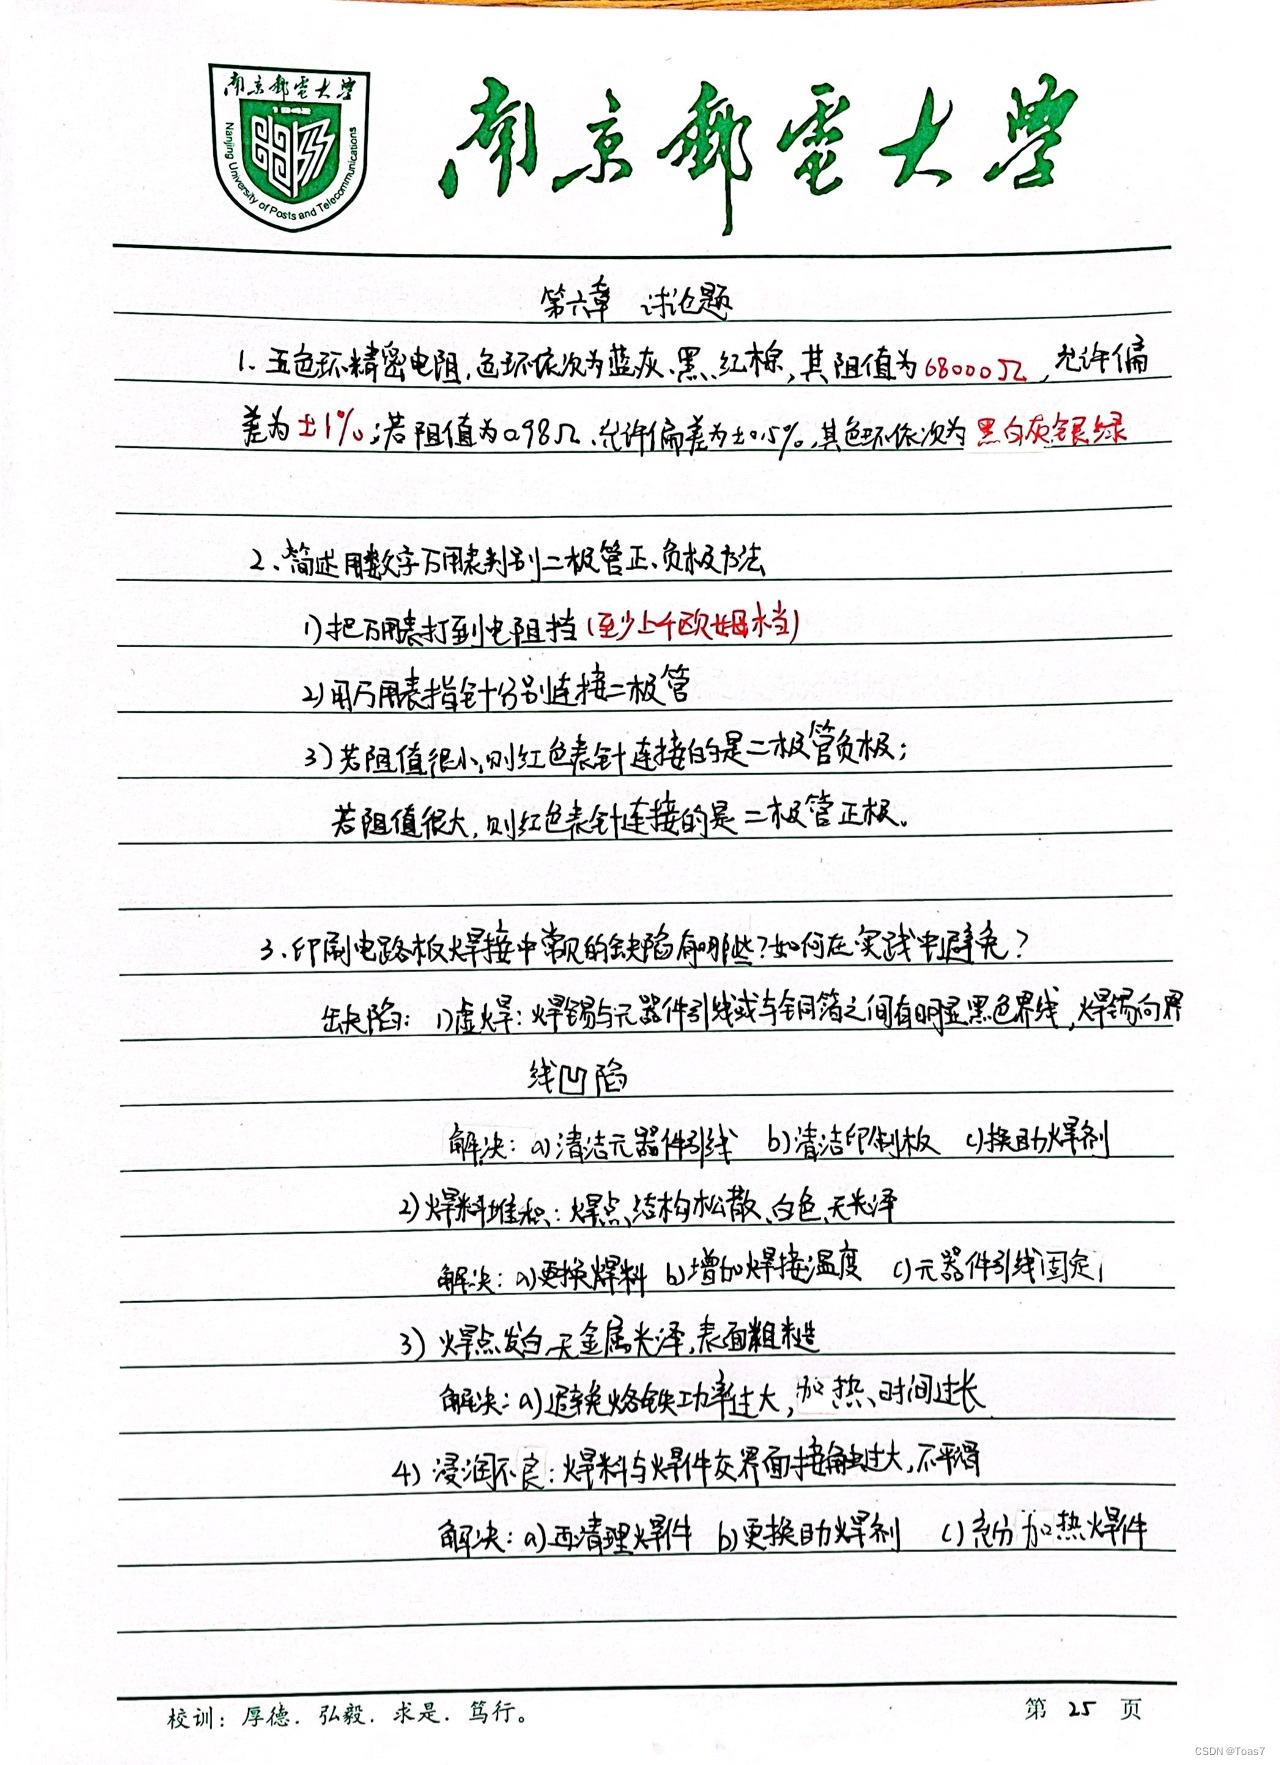 南京郵電大學
1942
Nanjing University of Posts and Telecommunications
南京郵電大學
第六章 讨论题
1、五色环精密电阻,色环依次为蓝、灰、黑、红、棕,其阻值为68000Ω,允许偏
差为±1%;若阻值为0.98Ω、允许偏差为±0.5%,其色环依次为 黑白灰银绿
2、简述用数字万用表判别二极管正、负极方法
1)把万用表打到电阻挡(至少上千欧姆档)
2)用万用表指针分别连接二极管
3)若阻值很小,则红色表针连接的是二极管负极;
若阻值很大,则红色表针连接的是二极管正极。
3、印刷电路板焊接中常见的缺陷有哪些?如何在实践中避免?
缺陷: 1)虚焊:焊锡与元器件引线或与铜箔之间有明显黑色界线,焊锡向界
线凹陷
解决:a)清洁元器件引线 b)清洁印制板 c)换助焊剂
2)焊料堆积:焊点结构松散、白色、无光泽
解决:a)更换焊料 b)增加焊接温度 c)元器件引线固定
3)焊点发白,无金属光泽,表面粗糙
解决:a)避免烙铁功率过大,加热时间过长
4)浸润不良:焊料与焊件交界面接触过大,不平滑
解决:a)再清理焊件 b)更换助焊剂 c)充分加热焊件
校训:厚德.弘毅.求是.笃行。
第 25 页
CSDN @Toas7